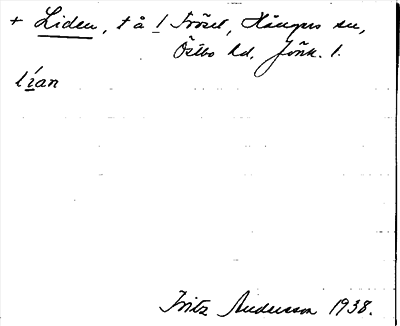 + Liden, t å 1 Frösel, Hångers sn,
Östbo hd, Jönk. l.
lían
Fritz Andersson 1938.